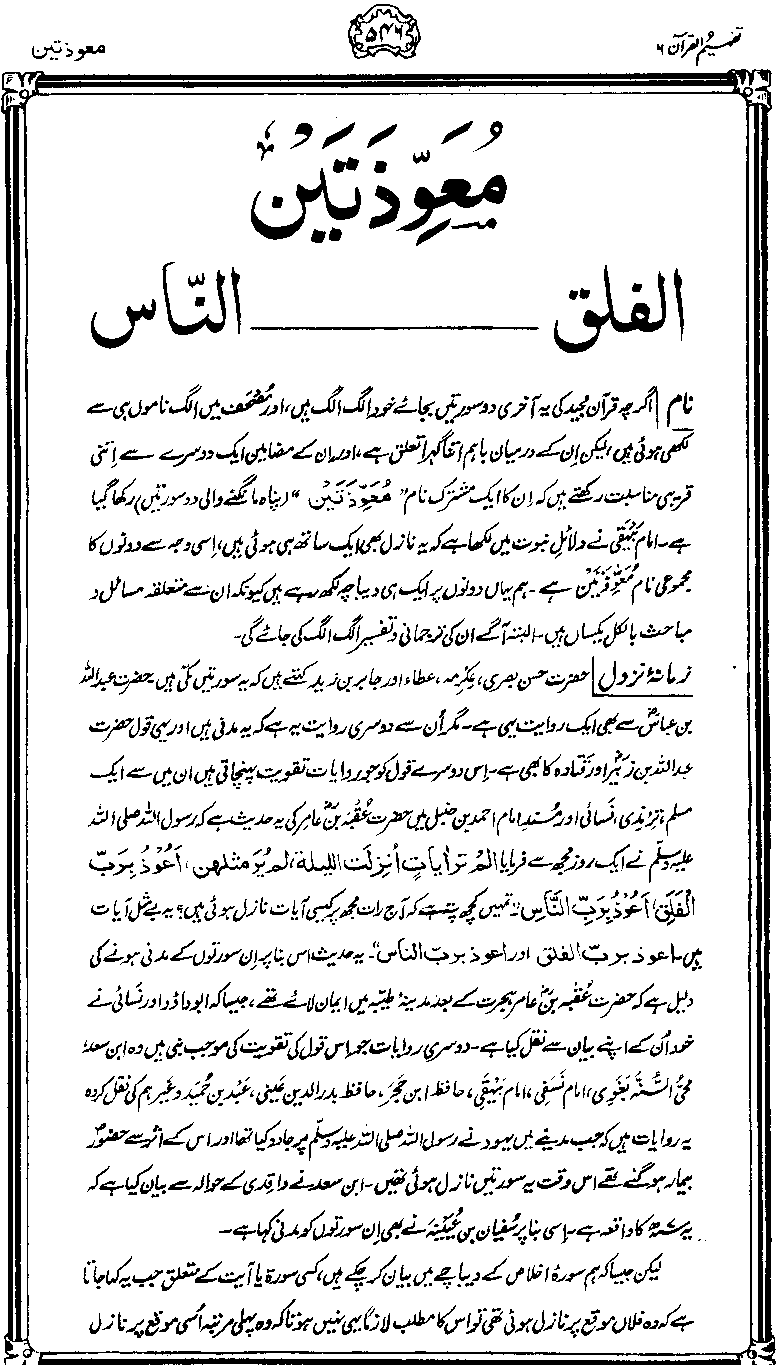 تفہیم القرآن ۶
۵۴۶
معوذتین
مُعَوِّذَتَین
الفلق ـــــــــ النّاس
نام اگرچہ قرآن مجید کی یہ آخری دو سورتیں بجائے خود الگ الگ ہیں، اور مُصْحَف میں الگ ناموں ہی سے
لکھی ہوئی ہیں، لیکن اِن کے درمیان باہم اتنا گہرا تعلق ہے، اور ان کے مضامین ایک دوسرے سے اِتنی
قریبی مناسبت رکھتے ہیں کہ اِن کا ایک مشترک نام "مُعَوِّذَتَیْن" (پناہ مانگنے والی دو سورتیں) رکھا گیا
ہے۔ امام بَیْہَقی نے دلائلِ نبوت میں لکھا ہے کہ یہ نازل بھی ایک ساتھ ہی ہوئی ہیں، اِسی وجہ سے دونوں کا
مجموعی نام مُعَوِّذَتَیْن ہے۔ ہم یہاں دونوں پر ایک ہی دیباچہ لکھ رہے ہیں کیونکہ ان سے متعلقہ مسائل و
مباحث بالکل یکساں ہیں۔ البتہ آگے ان کی ترجمانی و تفسیر الگ الگ کی جائے گی۔
زمانۂ نزول حضرت حسن بصری، عِکْرِمہ، عطاء اور جابر بن زید کہتے ہیں کہ یہ سورتیں مکّی ہیں۔ حضرت عبداللہ
بن عباسؓ سے بھی ایک روایت یہی ہے۔ مگر اُن سے دوسری روایت یہ ہے کہ یہ مدنی ہیں اور یہی قول حضرت
عبداللہ بن زبیرؓ اور قتادہ کا بھی ہے۔ اِس دوسرے قول کو جو روایات تقویت پہنچاتی ہیں ان میں سے ایک
مسلم، ترمذی، نسائی اور مُسند امام احمد بن حنبل میں حضرت عُقْبہؓ بن عامر کی یہ حدیث ہے کہ رسول اللہ صلی اللہ
علیہ وسلم نے ایک روز مجھ سے فرمایا الم تر اٰیاتٍ اُنزِلَت اللیلۃ، لم یُرَ مثلھن، اَعُوْذُ بِرَبِّ
الْفَلَقِ، اَعُوْذُ بِرَبِّ النَّاسِ "تمہیں کچھ پتہ ہے کہ آج رات مجھ پر کیسی آیات نازل ہوئی ہیں؟ یہ بے مثل آیات
ہیں۔ اعوذ برب الفلق اور اعوذ برب الناس"۔ یہ حدیث اس بنا پر اِن سورتوں کے مدنی ہونے کی
دلیل ہے کہ حضرت عُقْبہؓ بن عامر ہجرت کے بعد مدینۂ طیّبہ میں ایمان لائے تھے، جیسا کہ ابوداؤد اور نَسائی نے
خود اُن کے اپنے بیان سے نقل کیا ہے۔ دوسری روایات جو اس قول کی تقویت کی موجب بنی ہیں وہ ابن سعد،
مُحْیُّ السُّنَّۃ بَغَوِی، امام نَسَفِی، امام بَیْہَقِی، حافظ ابن حَجَر، حافظ بدرالدین عَینی، عَبْد بن حُمَید وغیر ہم کی نقل کردہ
یہ روایات ہیں کہ جب مدینے میں یہود نے رسول اللہ صلی اللہ علیہ وسلم پر جادو کیا تھا اور اس کے اثر سے حضورؐ
بیمار ہو گئے تھے اس وقت یہ سورتیں نازل ہوئی تھیں۔ ابن سعد نے واقدی کے حوالہ سے بیان کیا ہے کہ
یہ کا واقعہ ہے۔ اِسی بنا پر سُفیان بن عُیَیْنَہ نے بھی اِن سورتوں کو مدنی کہا ہے۔
لیکن جیسا کہ ہم سورۂ اخلاص کے دیباچے میں بیان کر چکے ہیں، کسی سورۃ یا آیت کے متعلق جب یہ کہا جاتا
ہے کہ وہ فلاں موقع پر نازل ہوئی تھی تو اس کا مطلب لازماً یہی نہیں ہوتا کہ وہ پہلی مرتبہ اُسی موقع پر نازل